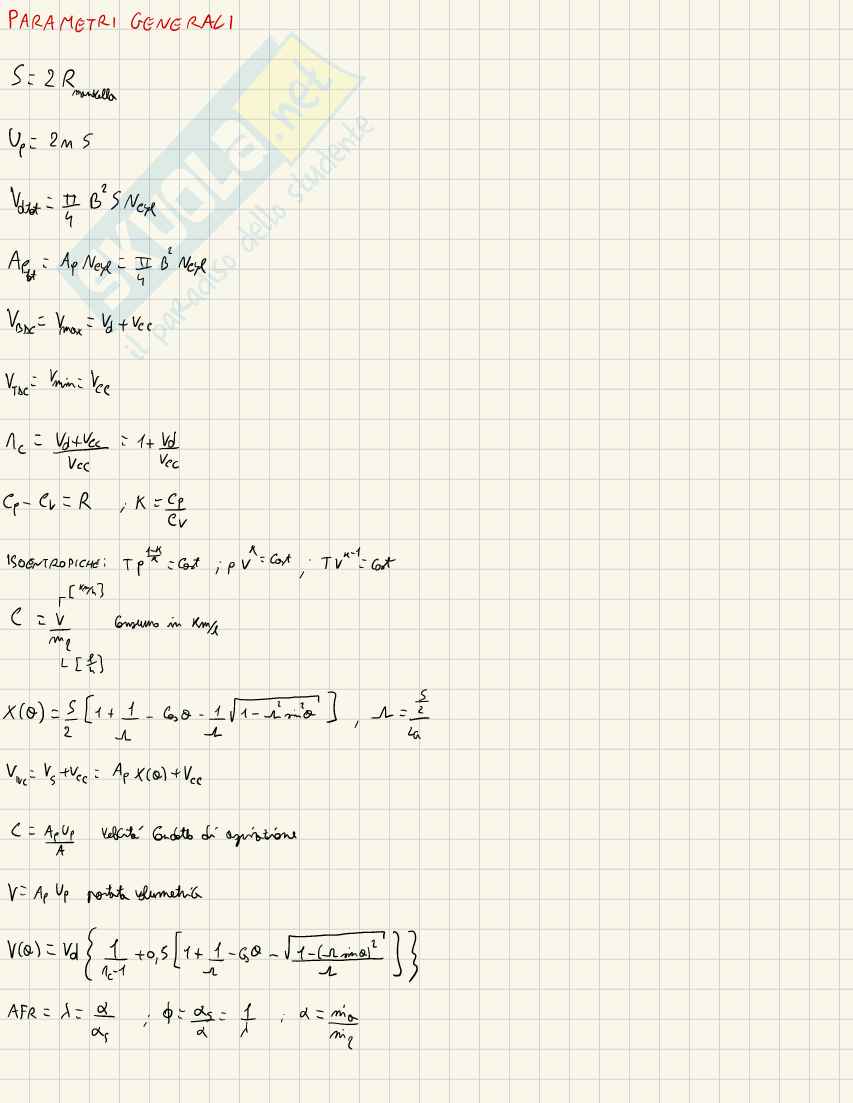 PARAMETRI GENERALI
SKUOLA.net
il paradiso dello studente
S = 2 R_manovella
U_p = 2 n S
V_dtot = π/4 B² S N_cyl
A_ptot = A_p N_cyl = π/4 B² N_cyl
V_BDC = V_max = V_d + V_cc
V_TDC = V_min = V_cc
r_c = (V_d + V_cc)/V_cc = 1 + V_d/V_cc
C_p - C_v = R ; K = C_p/C_v
ISOENTROPICHE: T p^((1-K)/K) = cost ; p V^K = cost ; T V^(K-1) = cost
[Km/h]
C = V/ṁ_l Consumo in Km/l
[l/h]
X(θ) = S/2 [1 + 1/Λ - Cos θ - 1/Λ √(1 - Λ² sin² θ)] , Λ = (S/2)/L_a
V_IVC = V_s + V_cc = A_p X(θ) + V_cc
C = A_p U_p/A velocità condotto di aspirazione
V = A_p U_p portata volumetrica
V(θ) = V_d {1/(r_c-1) + 0,5 [1 + 1/Λ - Cos θ - √(1 - (Λ sin θ)²)/Λ]}
AFR = λ = α/α_s ; ϕ = α_s/α = 1/λ ; α = ṁ_a/ṁ_l